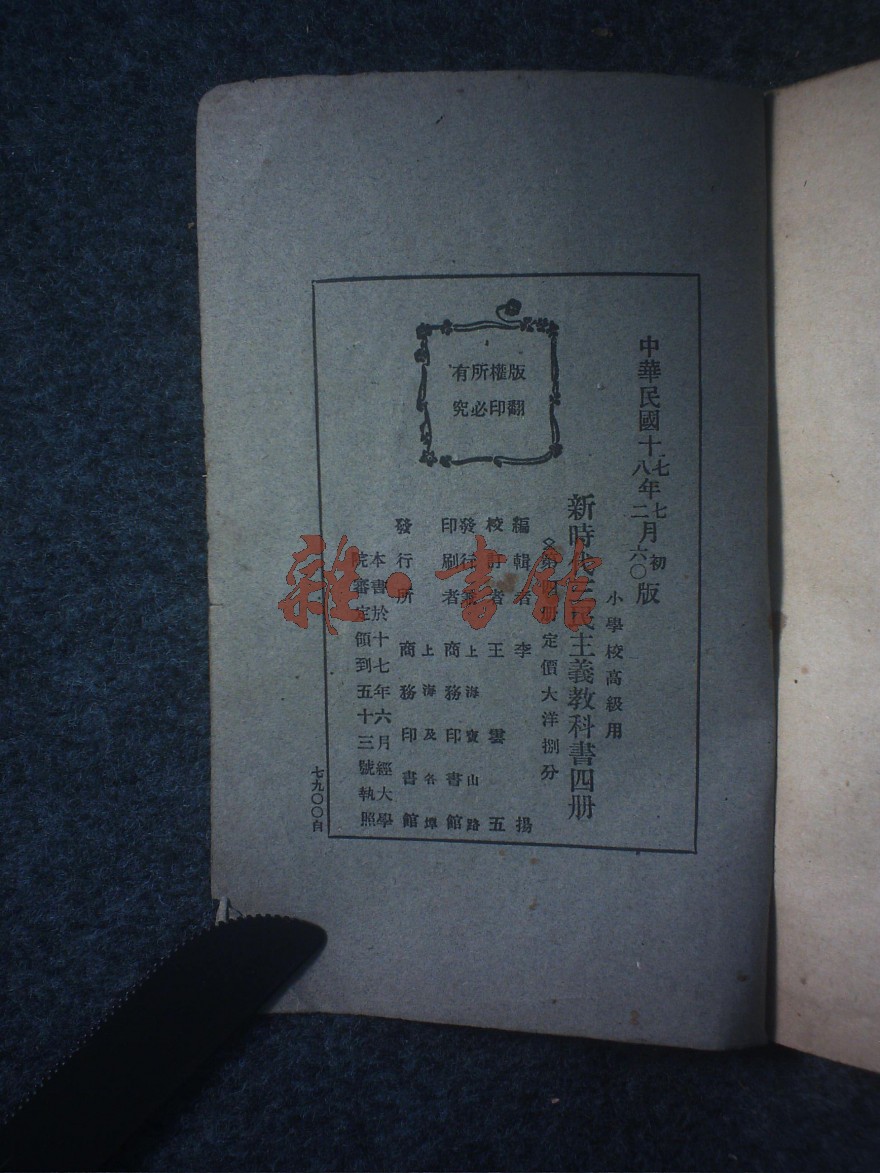 中華民國十七年七月初版
八二六〇
小學校高級用
新時代三民主義教科書四册
第四册定價大洋捌分
編輯者 李 揚
校訂者 王雲五
發行兼 上海寶山路
印刷者 商務印書館
上海及各埠
發行所 商務印書館
本書於十七年六月經大學
院審定領到五十三號執照
七九〇〇自
版權所有
翻印必究
雜·書館